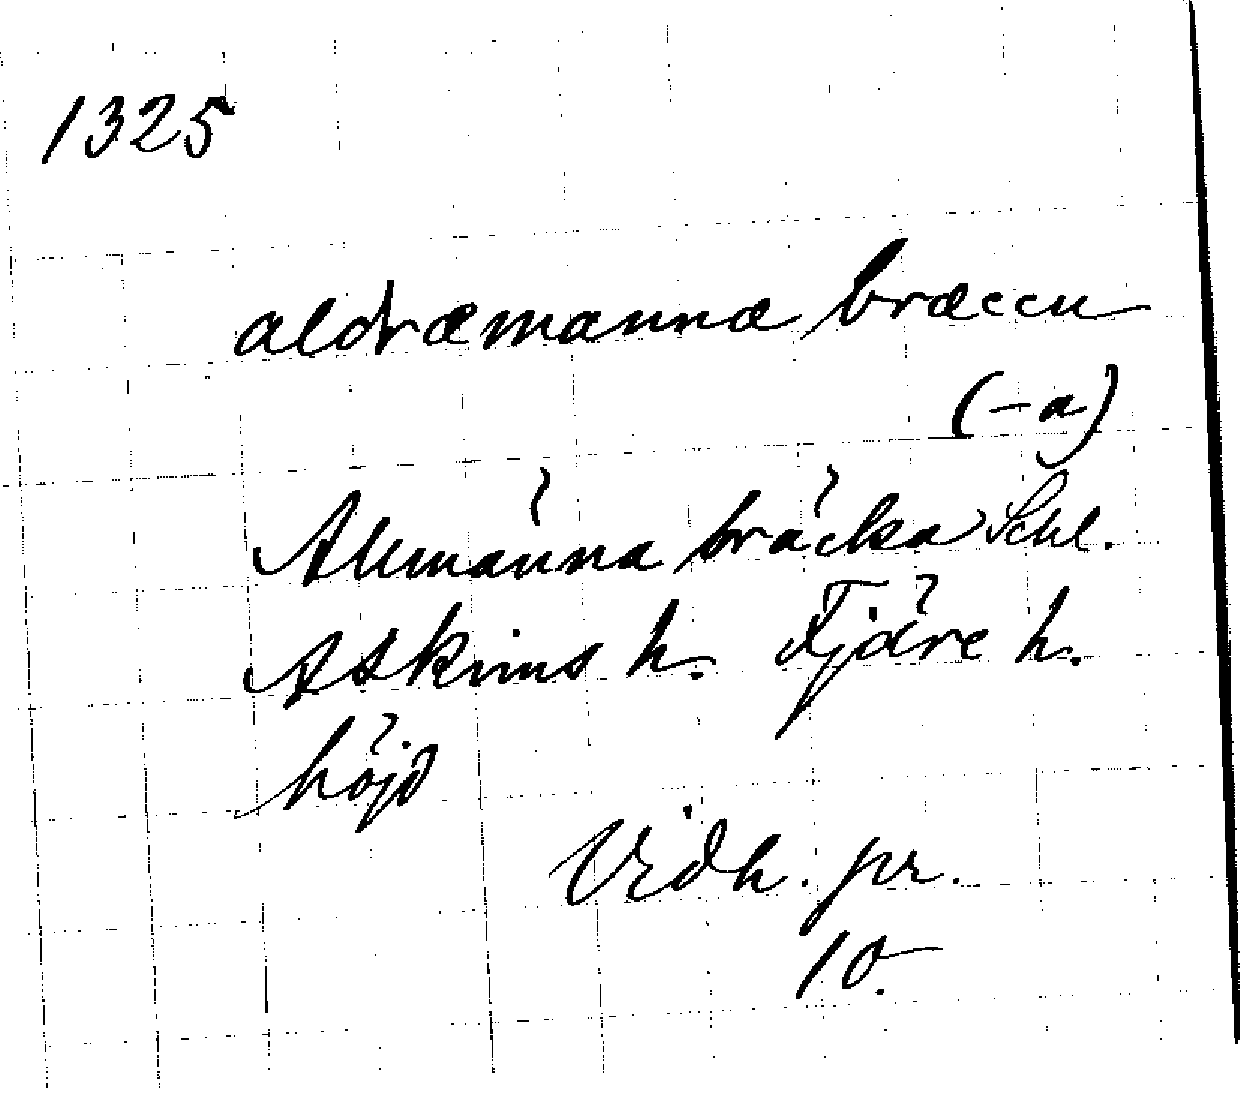 1325
aldræmannæ bræccu
(-a)
Allmänna bräcka Schl.
Askims h. Fjäre h.
höjd
Vidh. pr.
10.